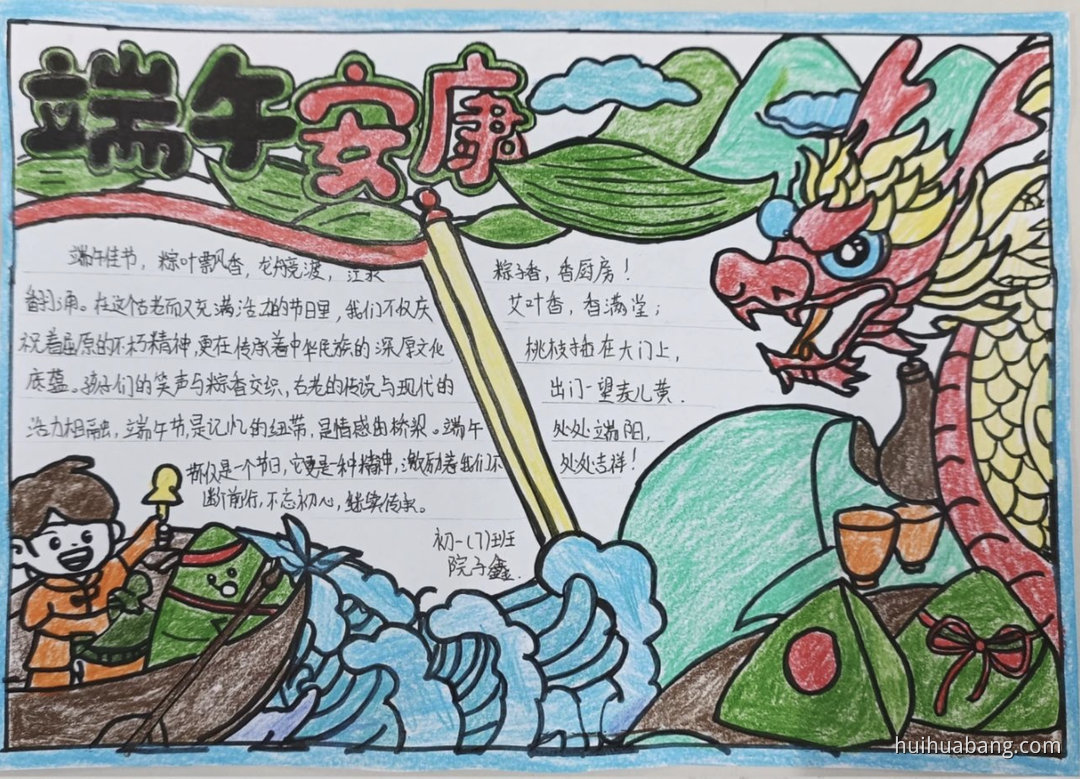 端午安康
端午佳节，粽叶飘香，龙舟竞渡，江水
翻涌。在这个古老而又充满活力的节日里，我们不仅庆
祝着屈原的不朽精神，更在传承着中华民族的深厚文化
底蕴。孩子们的笑声与粽香交织，古老的传说与现代的
活力相融，端午节，是记忆的纽带，是情感的桥梁。端午
不仅是一个节日，它更是一种精神，激励着我们不
断前行，不忘初心，继续传承。
初一(7)班
院子鑫.
粽子香，香厨房！
艾叶香，香满堂；
桃枝插在大门上，
出门一望麦儿黄．
处处端阳，
处处吉祥！
huihuabang.com